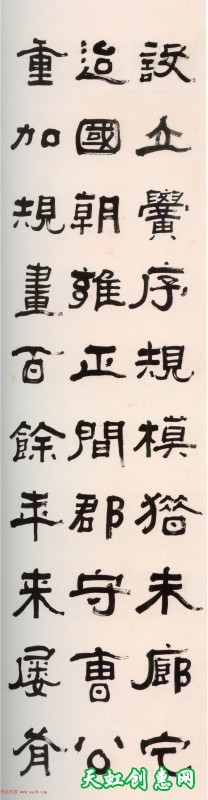 設立黌序規模猶未廓
迨國朝雍正間郡守曹公
重加規畫百餘年来屢
天虹创惠网